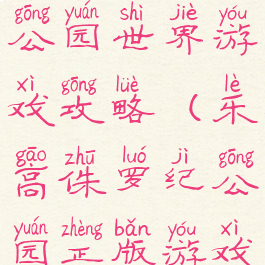 gōng yuán shì jiè yóu
公园世界游
xì gōng lüè lè
戏攻略(乐
gāo zhū luó jì gōng
高侏罗纪公
yuán zhèng bǎn yóu xì
园正版游戏